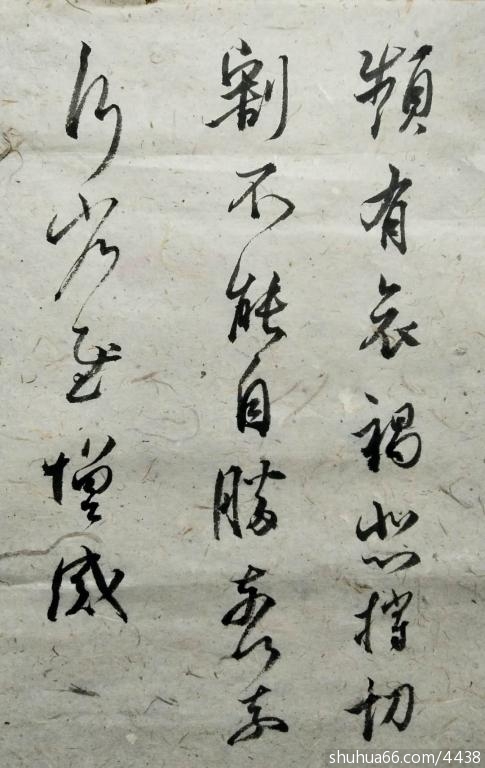 頻有哀禍悲摧切
割不能自勝奈何奈
何省慰增感
shuhua66.com/4438